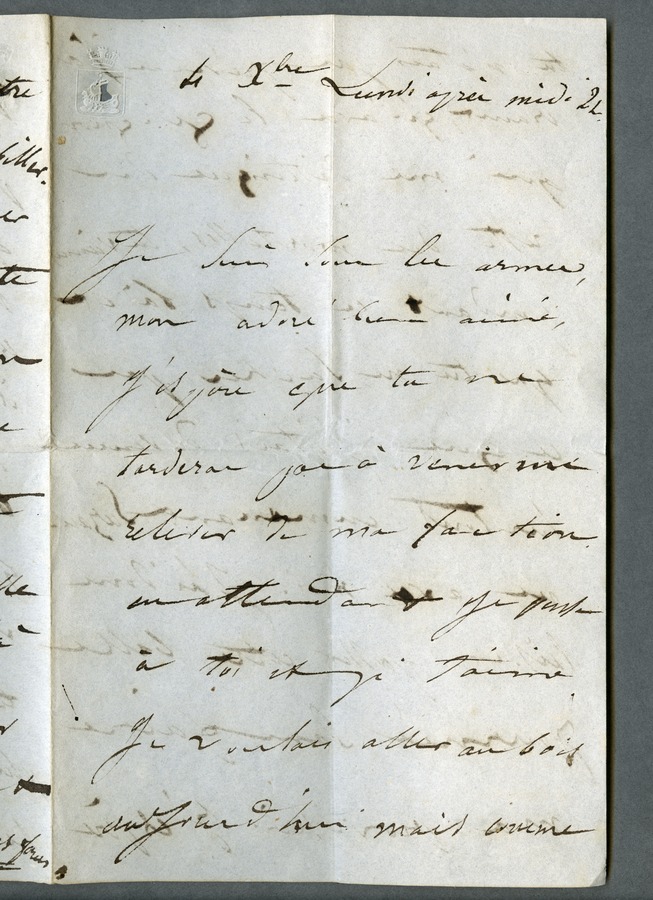 4 Xbre Lundi après midi 2h.
Je suis sous les armes,
mon adoré bien aimé,
j'espère que tu ne
tarderas pas à venir me
relever de ma faction.
en attendant je pense
à toi et je t'aime
Je voulais aller au bois
aujourd'hui mais comme